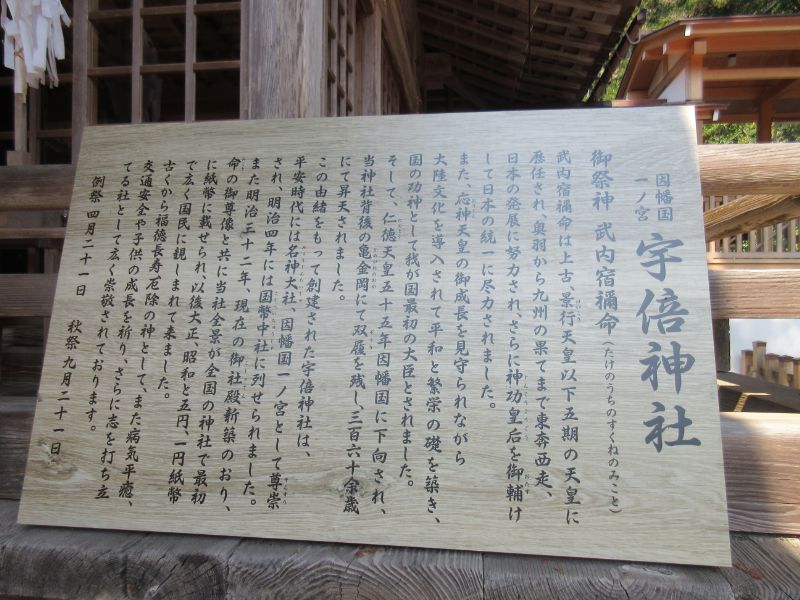 因幡国
一ノ宮
宇倍神社
御祭神 武内宿禰命(たけのうちのすくねのみこと)
武内宿禰命は上古、景行天皇以下五期の天皇に
歴任され、奥羽から九州の果てまで東奔西走、
日本の発展に努力され、さらに神功皇后を御輔け
して日本の統一に尽力されました。
また、応神天皇の御成長を見守られながら
大陸文化を導入されて平和と繁栄の礎を築き、
国の功神として我が国最初の大臣とされました。
そして、仁徳天皇五十五年因幡国に下向され、
当神社背後の亀金岡にて双履を残し三百六十余歳
にて昇天されました。
この由緒をもって創建された宇倍神社は、
平安時代には名神大社、因幡国一ノ宮として尊崇
され、明治四年には国幣中社に列せられました。
また明治三十二年、現在の御社殿新築のおり、
命の御尊像と共に当社全景が全国の神社で最初
に紙幣に載せられ、以後大正、昭和と五円、一円紙幣
で広く国民に親しまれて来ました。
古くから福徳長寿厄除の神として、また病気平癒、
交通安全や子供の成長を祈り、さらに志を打ち立
てる社として広く崇敬されております。
例祭 四月二十一日 秋祭 九月二十一日